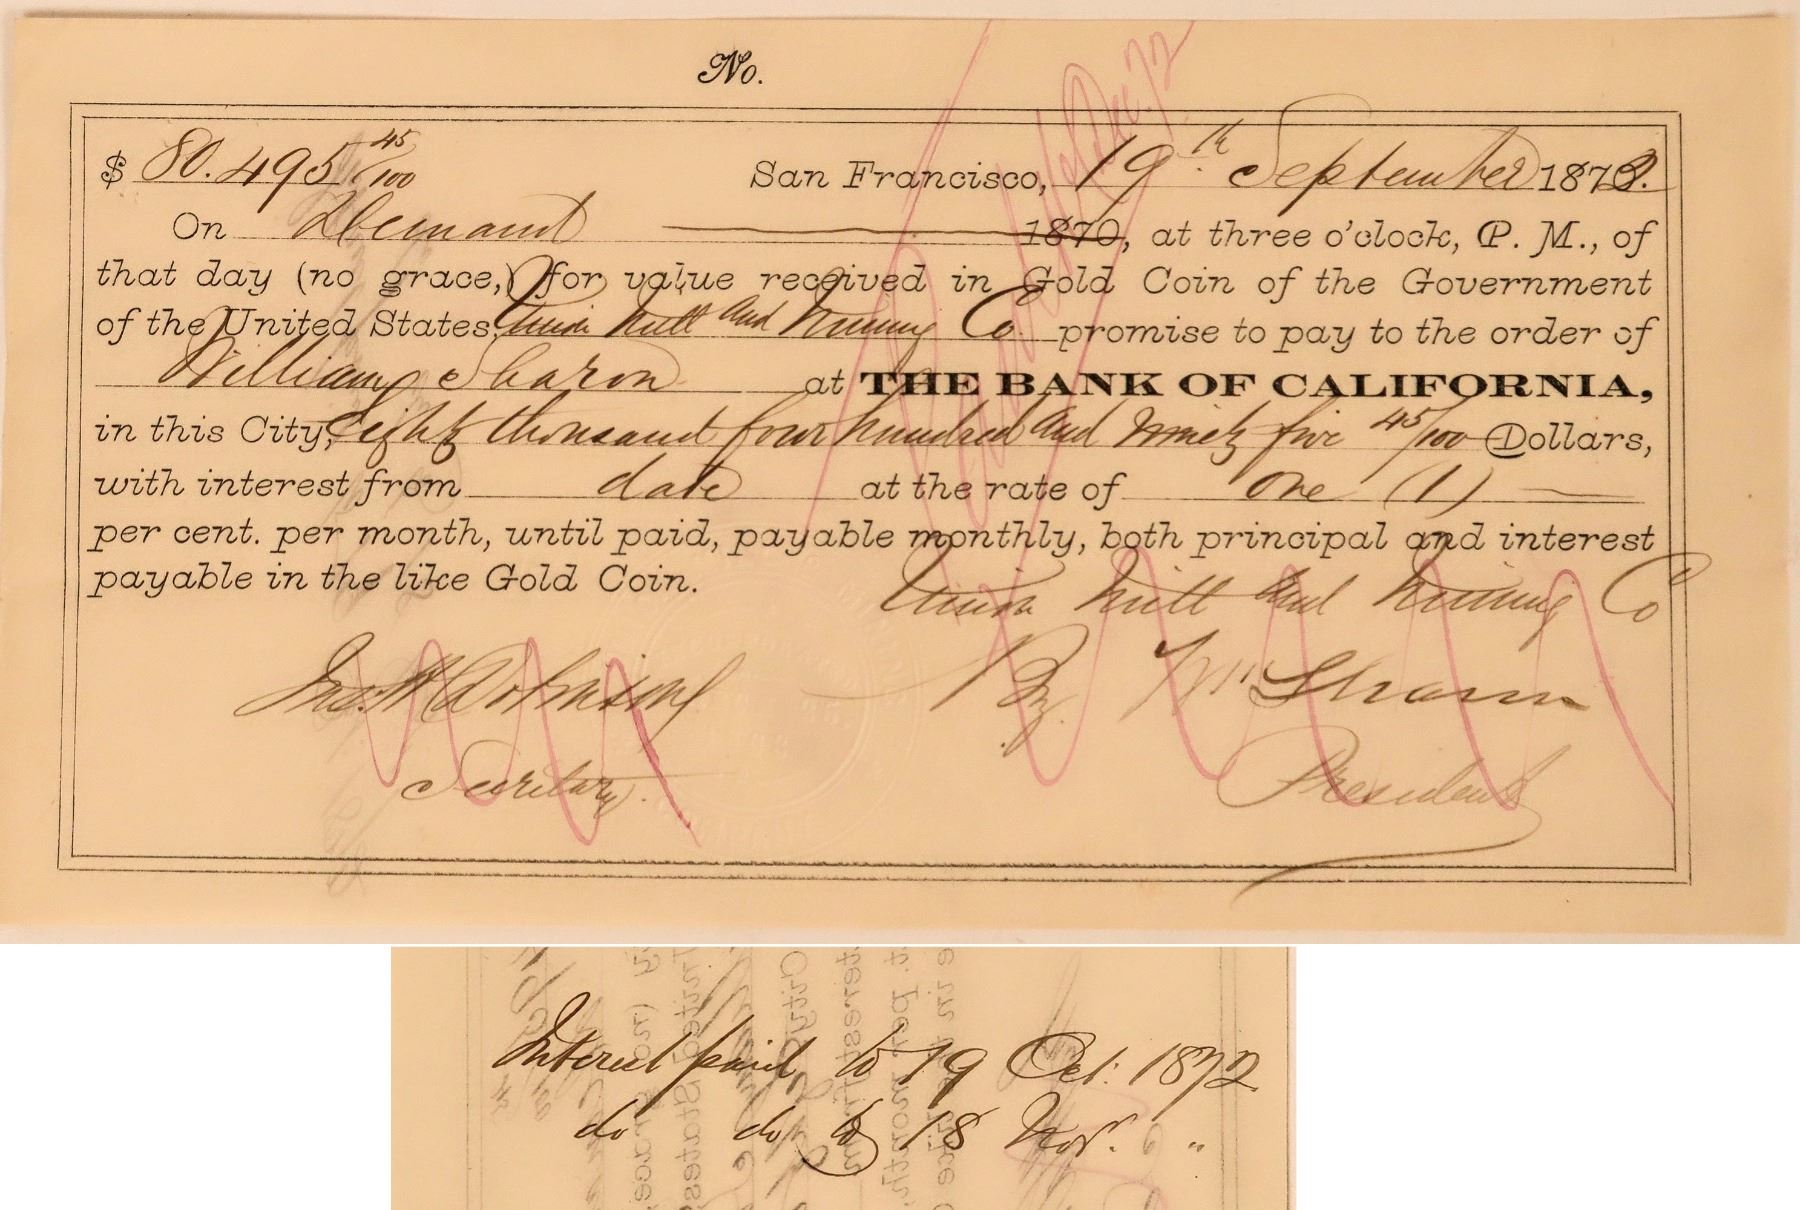 No.
$ 80.495 45/100 San Francisco, 19th September 1872.
On Demand 1870, at three o'clock, P. M., of
that day (no grace,) for value received in Gold Coin of the Government
of the United States, Union Mill and Mining Co promise to pay to the order of
William Sharon at THE BANK OF CALIFORNIA,
in this City, Eighty thousand four hundred and ninety five 45/100 Dollars,
with interest from date at the rate of one (1)
per cent. per month, until paid, payable monthly, both principal and interest
payable in the like Gold Coin.
Union Mill and Mining Co
By Wm Sharon
President
Secretary.
Dec. 72
Interest paid to 19 Oct. 1872
do do to 18 Nov. "